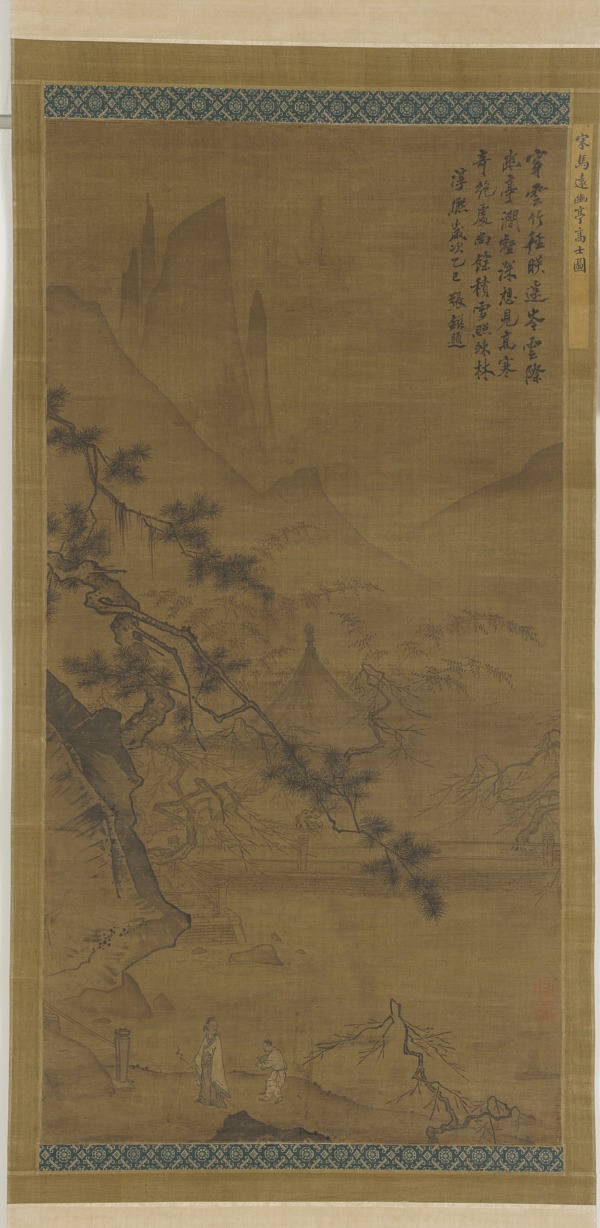 宋馬遠幽亭高士圖
穿雲竹徑暎遠岑雲際
幽亭澗壑深想見高寒
奇絶處尚餘積雪照疎林
淳熙歲次乙巳張鎡題